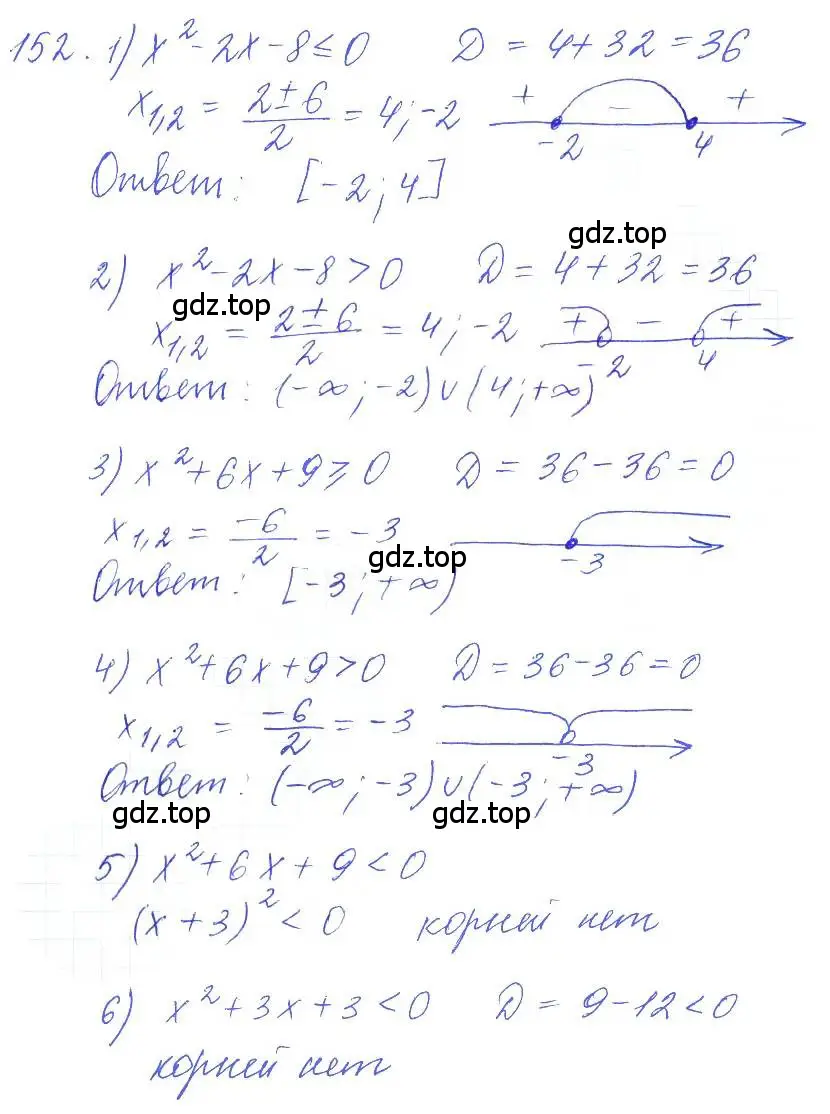 152. 1) x² - 2x - 8 ≤ 0 D = 4 + 32 = 36
x₁,₂ = (2 ± 6)/2 = 4; -2 + - + -2 4
Ответ: [-2; 4]
gdz.top
2) x² - 2x - 8 > 0 D = 4 + 32 = 36
gdz.top
x₁,₂ = (2 ± 6)/2 = 4; -2 + - + -2 4
Ответ: (-∞; -2) ∪ (4; +∞)
3) x² + 6x + 9 ≥ 0 D = 36 - 36 = 0
x₁,₂ = -6/2 = -3 -3
gdz.top
Ответ: [-3; +∞)
4) x² + 6x + 9 > 0 D = 36 - 36 = 0
x₁,₂ = -6/2 = -3 -3
Ответ: (-∞; -3) ∪ (-3; +∞)
gdz.top gdz.top
5) x² + 6x + 9 < 0
(x + 3)² < 0 корней нет
6) x² + 3x + 3 < 0 D = 9 - 12 < 0
корней нет